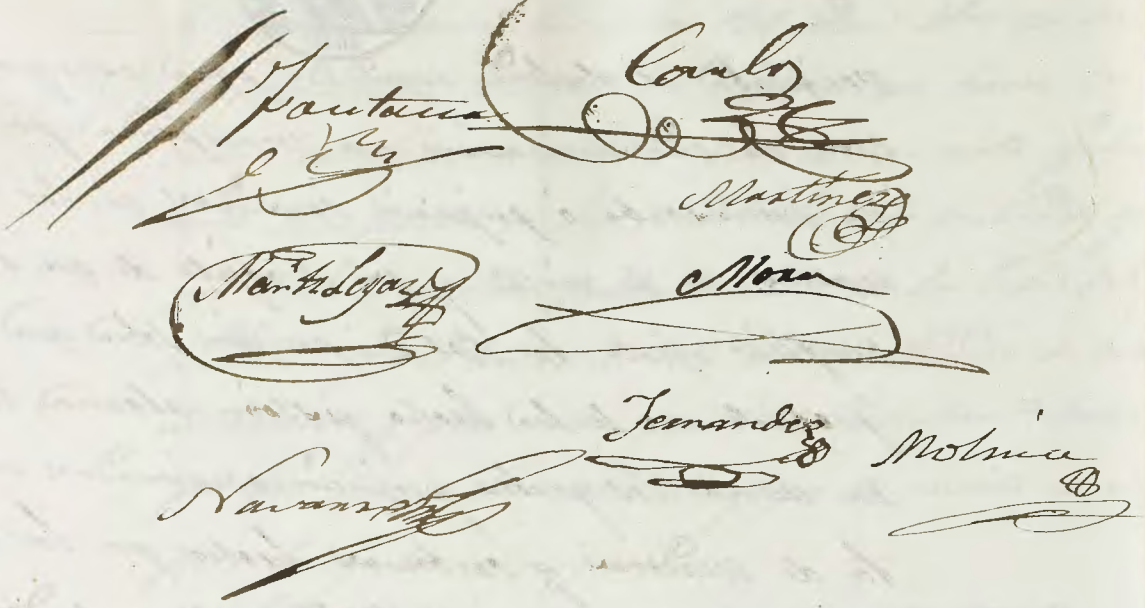 Fontana
Carlos
Martinez
Martz Legaz
Mora
Fernandez
Molina
Navarro